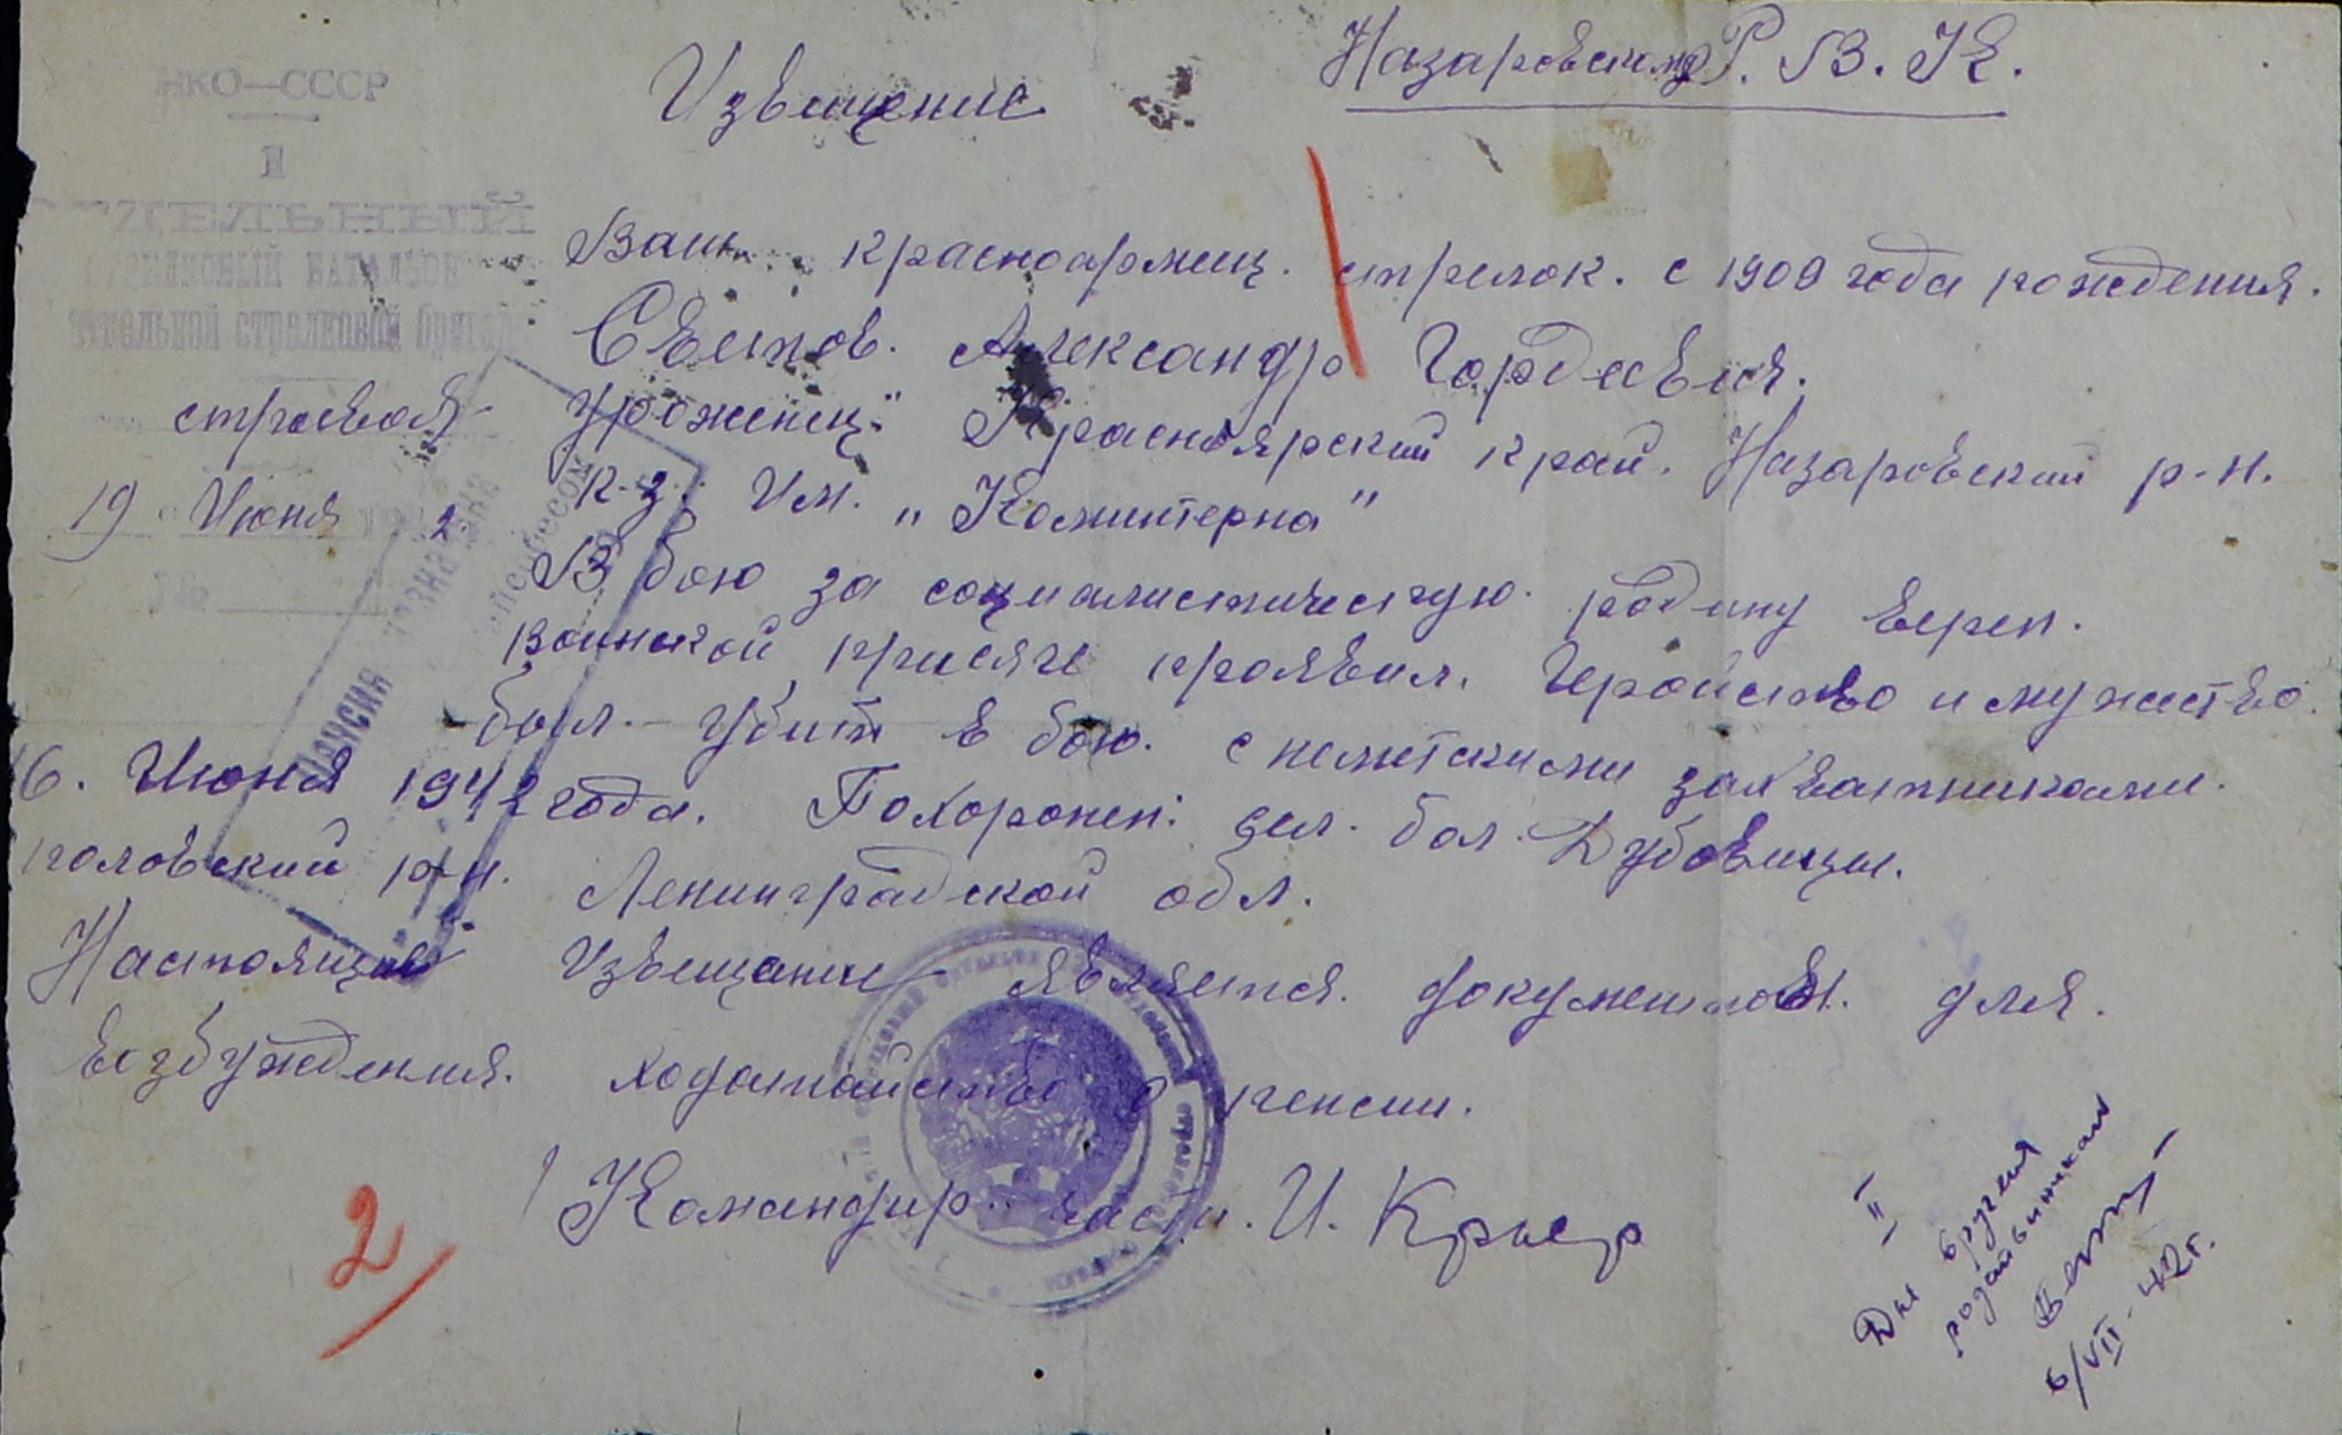 НКО—СССР
1
ОТДЕЛЬНЫЙ
СТРЕЛКОВЫЙ БАТАЛЬОН
отдельной стрелковой бригады
строевая
19 Июня 2
№
Извещение
Назаровскому Р. В. К.
Ваш красноармеец. стрелок. с 1909 года рождения.
Светов. Александр Гордеевич.
Уроженец Красноярский край. Назаровский р-н.
к-з. Им. „Коминтерна"
В бою за социалистическую родину верен.
воинской присяге проявил. Геройство и мужество.
был убит в бою. с неметскими захватниками.
6. Июня 1942 года. Похоронен: дел. бол. Дубовицы.
половский р-н. Ленинградской обл.
Настоящие Извещание является. документом. для.
возбуждения. ходатайство о пенсии.
Командир части. И.
Пенсия назначена
райсобесом
2
II
Для вручения
6/VII-42г.